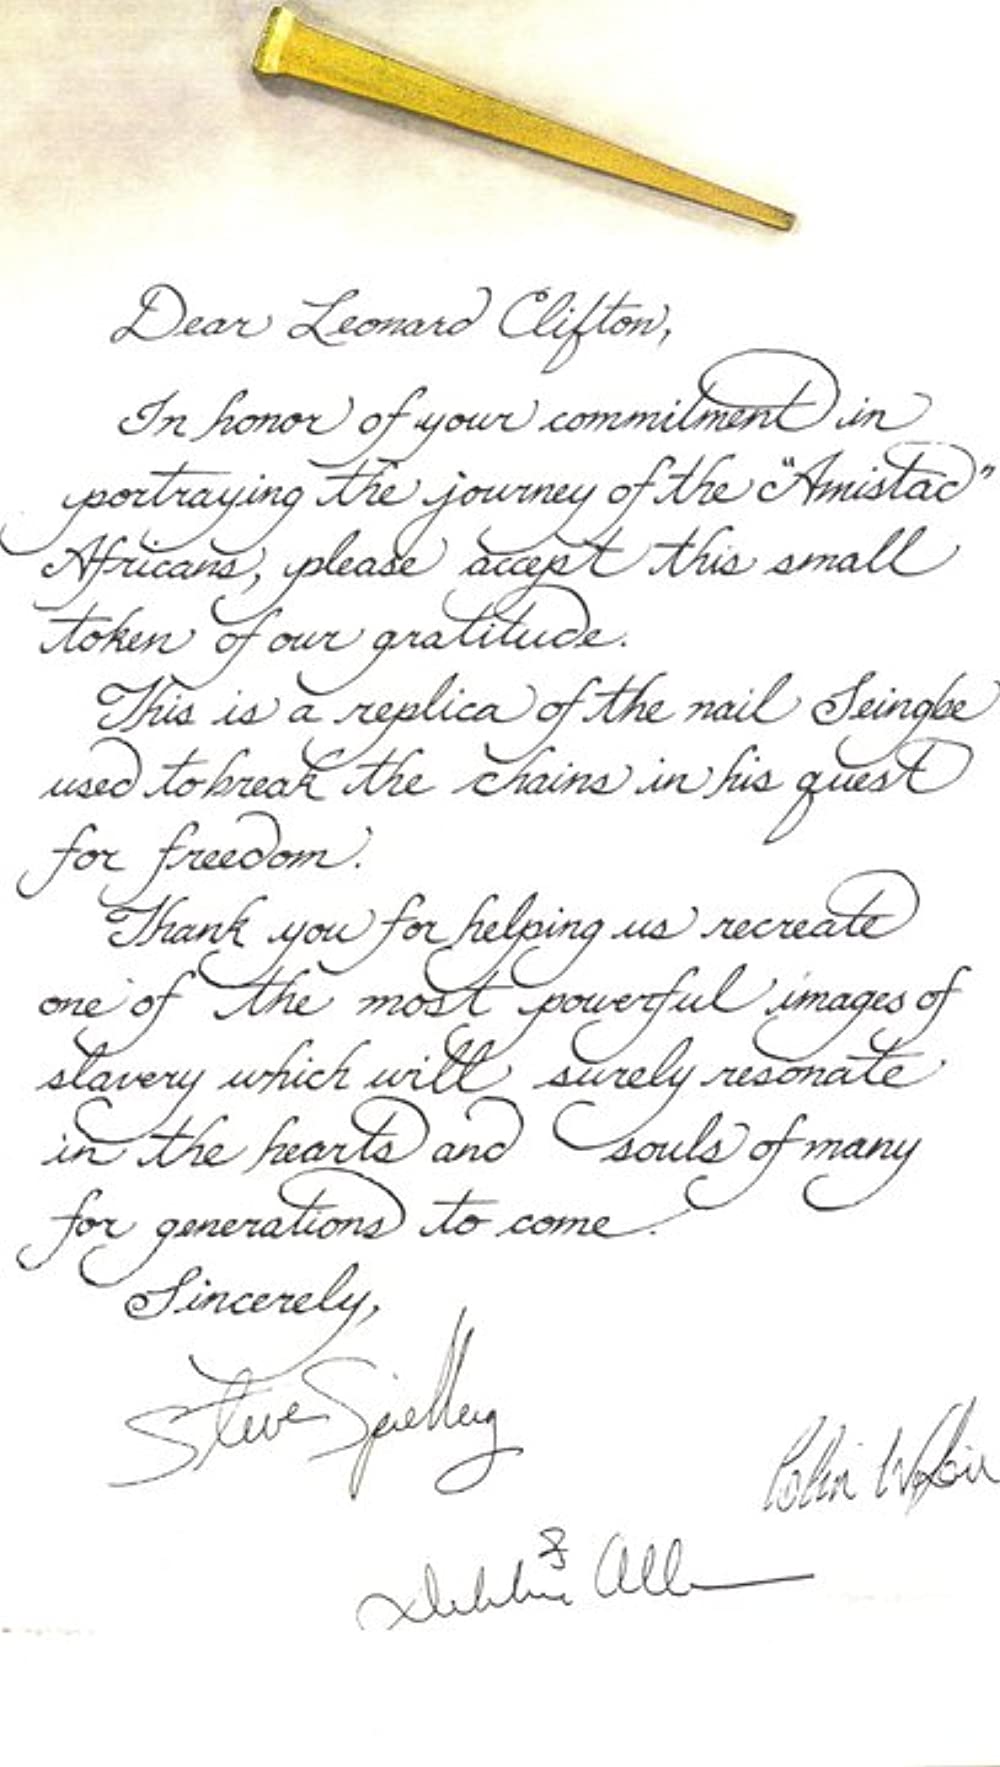 Dear Leonard Clifton,
In honor of your commitment in
portraying the journey of the "Amistad"
Africans, please accept this small
token of our gratitude.
This is a replica of the nail Seingbe
used to break the chains in his quest
for freedom.
Thank you for helping us recreate
one of the most powerful images of
slavery which will surely resonate
in the hearts and souls of many
for generations to come.
Sincerely,
Steve Spielberg
Colin Wilson
Debbie Allen